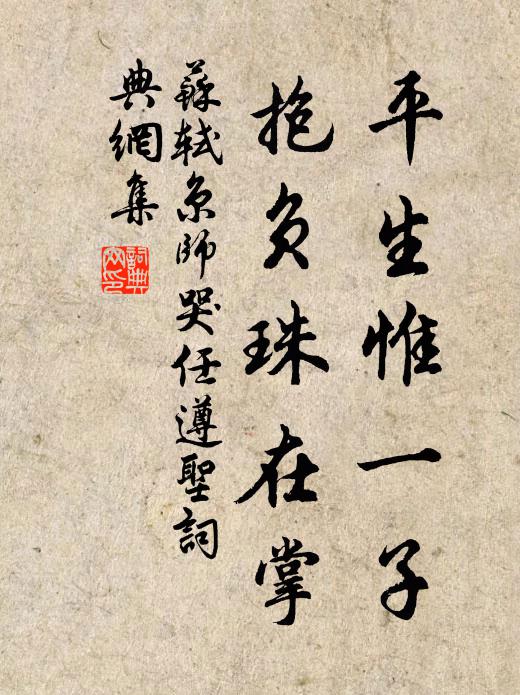 平生惟一子
抱负珠在掌
蘇軾京師哭任遵聖詞
典網集
詞典
网印